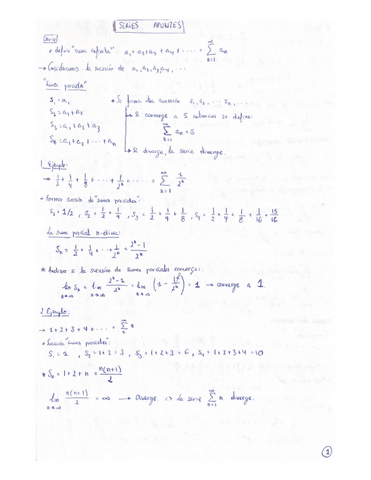 SERIES APUNTES
Serie
• definir "suma infinita": a₁+a₂+a₃+a₄+··· = ∑_{n=1}^{∞} aₙ
→ Consideramos la sucesión de a₁,a₂,a₃,a₄,···
"Suma parcial"
S₁ = a₁
S₂ = a₁+a₂
S₃ = a₁+a₂+a₃
Sₙ = a₁+a₂+···+aₙ
• Se forma una sucesión S₁,S₂,··· Sₙ,···
→ Si converge a S entonces se define:
∑_{n=1}^{∞} aₙ = S
→ Si diverge, la serie diverge.
1 Ejemplo:
→ 1/2 + 1/4 + 1/8 + ··· + 1/2ⁿ + ··· = ∑_{n=1}^{∞} 1/2ⁿ
• formar sucesión de "sumas parciales"
S₁ = 1/2, S₂ = 1/2 + 1/4, S₃ = 1/2 + 1/4 + 1/8, S₄ = 1/2 + 1/4 + 1/8 + 1/16 = 15/16
La suma parcial n-ésima:
Sₙ = 1/2 + 1/4 + ··· + 1/2ⁿ = (2ⁿ-1)/2ⁿ
* Analizar si la sucesión de sumas parciales converge:
lim_{n→∞} Sₙ = lim_{n→∞} (2ⁿ-1)/2ⁿ = lim_{n→∞} (1 - 1/2ⁿ) = 1 → converge a 1.
2 Ejemplo:
→ 1+2+3+4+··· = ∑_{n=1}^{∞} n
• Sucesión "sumas parciales":
S₁ = 1, S₂ = 1+2 = 3, S₃ = 1+2+3 = 6, S₄ = 1+2+3+4 = 10
* Sₙ = 1+2+n = n(n+1)/2
lim_{n→∞} n(n+1)/2 = ∞ → Diverge. => la serie ∑_{n=1}^{∞} n diverge.
1